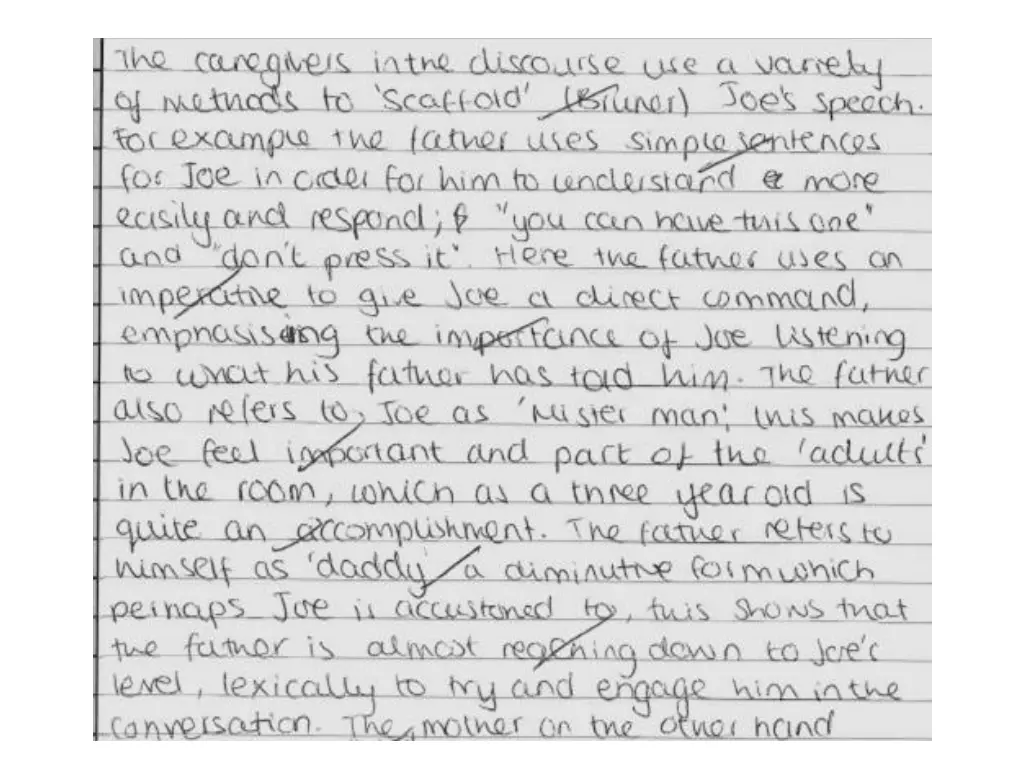 The caregivers in the discourse use a variety
of methods to 'scaffold' (Bruner) Joe's speech.
For example the father uses simple sentences
for Joe in order for him to understand more
easily and respond; "you can have this one"
and "don't press it". Here the father uses an
imperative to give Joe a direct command,
emphasising the importance of Joe listening
to what his father has told him. The father
also refers to Joe as 'Mister man', this makes
Joe feel important and part of the 'adults'
in the room, which as a three year old is
quite an accomplishment. The father refers to
himself as 'daddy' a diminutive form which
perhaps Joe is accustomed to, this shows that
the father is almost reaching down to Joe's
level, lexically to try and engage him in the
conversation. The mother on the other hand